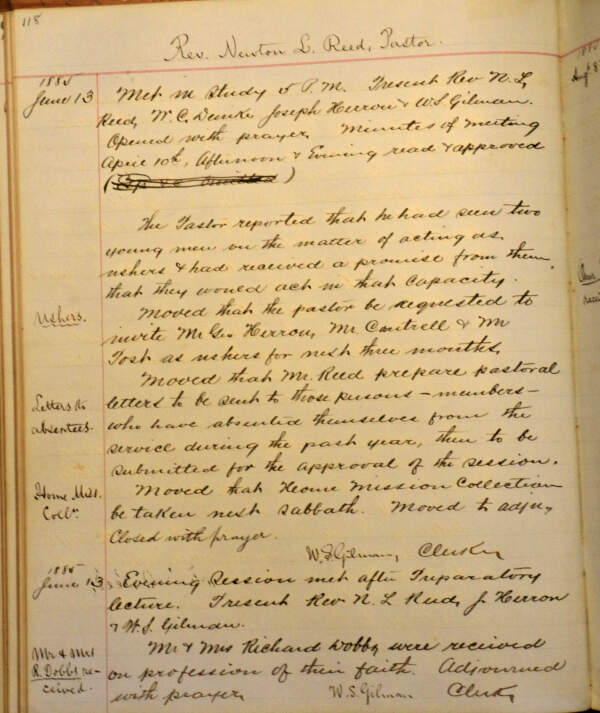 118
Rev. Newton L. Reed, Pastor.
1885
June 13
Met in Study 5 P.M. Present Rev N. L.
Reed, W. C. Joseph Herron & W. S. Gilman.
Opened with prayer. Minutes of meeting
April 10th, Afternoon & Evening read & approved
The Pastor reported that he had seen two
young men on the matter of acting as
ushers & had received a promise from them
that they would act in that capacity.
Ushers.
Moved that the pastor be requested to
invite Mr Geo Herron, Mr Cantrell & Mr
Tosh as ushers for next three months.
Letters to
absentees.
Moved that Mr. Reed prepare pastoral
letters to be sent to those persons - members -
who have absented themselves from the
service during the past year, then to be
submitted for the approval of the session.
Home Miss.
Colln.
Moved that Home Mission Collection
be taken next sabbath. Moved to adjn,
Closed with prayer.
W. S. Gilman, Clerk
1885
June 13
Evening Session met after Preparatory
lecture. Present Rev N. L Reed, J Herron
& W. S. Gilman.
Mr & Mrs
R. Dobbs re-
ceived.
Mr & Mrs Richard Dobbs were received
on profession of their faith. Adjourned
with prayer,
W. S. Gilman Clerk